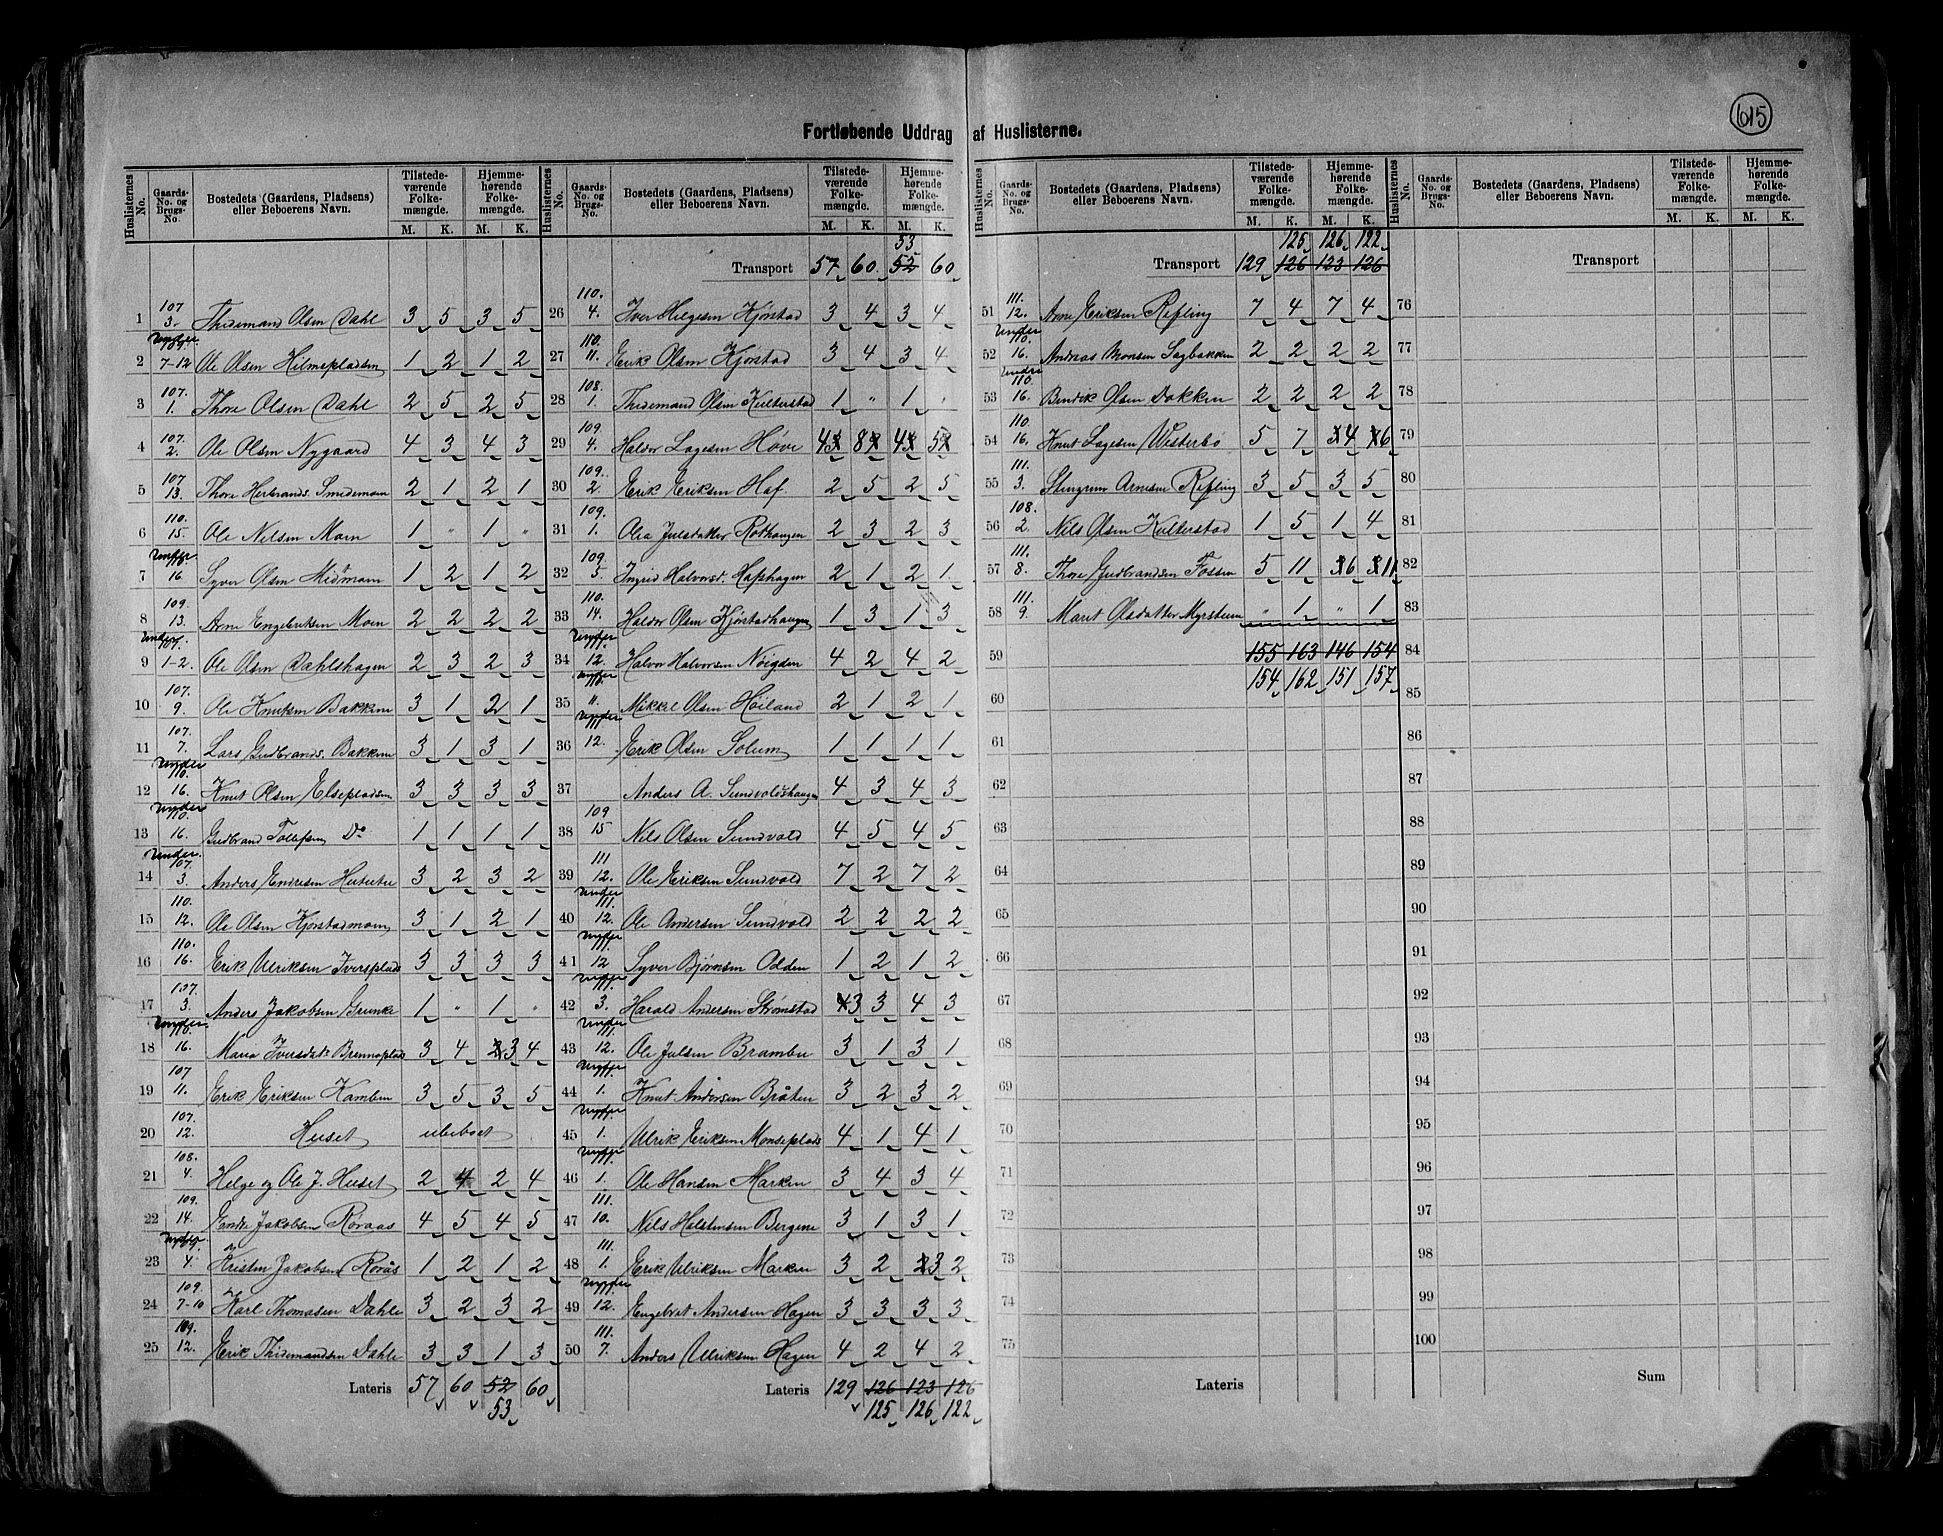 615
Fortløbende Uddrag af Huslisterne.
Huslisternes No. Gaards-No. og Brugs-No. Bostedets (Gaardens, Pladsens) eller Beboerens Navn. Tilstede-værende Folke-mængde. Hjemme-hørende Folke-mængde.
M. K. M. K.
1 107 3. Thidemand Olsen Dahl 3 5 3 5
2 under 109. 7-12 Ole Olsen Hilmepladsen 1 2 1 2
3 107. 1. Thore Olsen Dahl 2 5 2 5
4 107. 2. Ole Olsen Nygaard 4 3 4 3
5 107 13. Thore Herbrands. Smedemoen 2 1 2 1
6 110. 15. Ole Nilsen Moen 1 " 1 "
7 under 110. 16 Syver Olsen Midmoen 1 2 1 2
8 109. 13. Arne Engebretsen Moen 2 2 2 2
9 under 107. 1-2. Ole Olsen Dahlshagen 2 3 2 3
10 107. 9. Ole Knutsen Bakkene 3 1 2 1
11 107. 7. Lars Gudbrands. Bakkene 3 1 3 1
12 under 110. 16. Knut Olsen Elsepladsen 3 3 3 3
13 under 110. 16. Gudbrand Tollefsen Do 1 1 1 1
14 under. 107. 3. Anders Endresen 3 2 3 2
15 110. 12. Ole Olsen Kjørstadmoen 3 1 2 1
16 110. 16. Erik Ulriksen Iversplads 3 3 3 3
17 137. 3. Anders Jakobsen Brenke 1 " 1 "
18 under 110. 16. Maria Iversdat. Brennaplads 3 4 3 4
19 107 11. Erik Eriksen Kamben 3 5 3 5
20 107. 12. Huset ubeboet
21 108. 4. Helge og Ole J. Huset 2 4 2 4
22 109. 14. Endre Jakobsen Røraas 4 5 4 5
23 under 109. 4. Kristen Jakobsen Rorås 1 2 1 2
24 109. 7-10 Karl Thomasen Dahle 3 2 3 2
25 109. 12. Erik Thidemandsen Dahle 3 3 1 3
Lateris 57 60 52 60
53
Huslisternes No. Gaards-No. og Brugs-No. Bostedets (Gaardens, Pladsens) eller Beboerens Navn. Tilstede-værende Folke-mængde. Hjemme-hørende Folke-mængde.
M. K. M. K.
53
Transport 57 60 52 60
26 110. 4. Iver Helgesen Kjørstad 3 4 3 4
27 110. 11. Erik Olsen Kjørstad 3 4 3 4
28 108. 1. Thidemand Olsen Kulterstad 1 " 1 "
29 109. 4. Haldor Lagesen Høve 4 8 4 5
30 109. 2. Erik Eriksen Haf. 2 5 2 5
31 109. 1. Olea Julsdatter Rothaugen 2 3 2 3
32 109. 5. Ingrid Halvorst. Hafshagen 2 1 2 1
33 110. 14. Haldor Olsen Kjørstadhaugen 1 3 1 3
34 under 111. 12. Halvor Halvorsen Nøigden 4 2 4 2
35 under 110. 11. Mikkel Olsen Høiland 2 1 2 1
36 under 111. 12. Erik Olsen Solum 1 1 1 1
37 Anders A. Sundvoldshaugen 4 3 4 3
38 109 15 Nils Olsen Sundvold 4 5 4 5
39 111 12. Ole Eriksen Sundvold 7 2 7 2
40 under 111. 12. Ole Andersen Sundvold 2 2 2 2
41 under 111. 12 Syver Bjørnsen Odden 1 2 1 2
42 under 111. 3. Harald Andersen Strømstad 3 3 4 3
43 under 111. 12. Ole Julsen Bramben 3 1 3 1
44 under 111. 1. Knut Andersen Bråten 3 2 3 2
45 under 111. 1. Ulrik Eriksen Monseplads 4 1 4 1
46 under 111. 1. Ole Hansen Marken 3 4 3 4
47 111. 10. Nils Holstensen Bergene 3 1 3 1
48 111. 1. Erik Ulriksen Marken 3 2 3 2
49 under 111. 12. Engebret Andersen Hagen 3 3 3 3
50 111. 7. Anders Ulriksen Hagen 4 2 4 2
Lateris 129 126 123 126
125 126 122
Huslisternes No. Gaards-No. og Brugs-No. Bostedets (Gaardens, Pladsens) eller Beboerens Navn. Tilstede-værende Folke-mængde. Hjemme-hørende Folke-mængde.
M. K. M. K.
125 126 122
Transport 129 126 123 126
51 111. 12. Arne Eriksen Refling 7 4 7 4
52 under 110. 16. Andreas Monsen Sagbakken 2 2 2 2
53 under 110. 16. Bendik Olsen Dokken 2 2 2 2
54 110. 16. Knut Lagesen Westerbø 5 7 4 6
55 111. 3. Stengrim Arnesen Refling 3 5 3 5
56 108. 2. Nils Olsen Kulterstad 1 5 1 4
57 111. 8. Thore Gudbrandsen Fossen 5 11 6 11
58 111. 9. Marit Olsdatter Myrstuen " 1 " 1
59 155 163 146 154
154 162 151 157
60
61
62
63
64
65
66
67
68
69
70
71
72
73
74
75
Lateris
Huslisternes No. Gaards-No. og Brugs-No. Bostedets (Gaardens, Pladsens) eller Beboerens Navn. Tilstede-værende Folke-mængde. Hjemme-hørende Folke-mængde.
M. K. M. K.
Transport
76
77
78
79
80
81
82
83
84
85
86
87
88
89
90
91
92
93
94
95
96
97
98
99
100
Sum